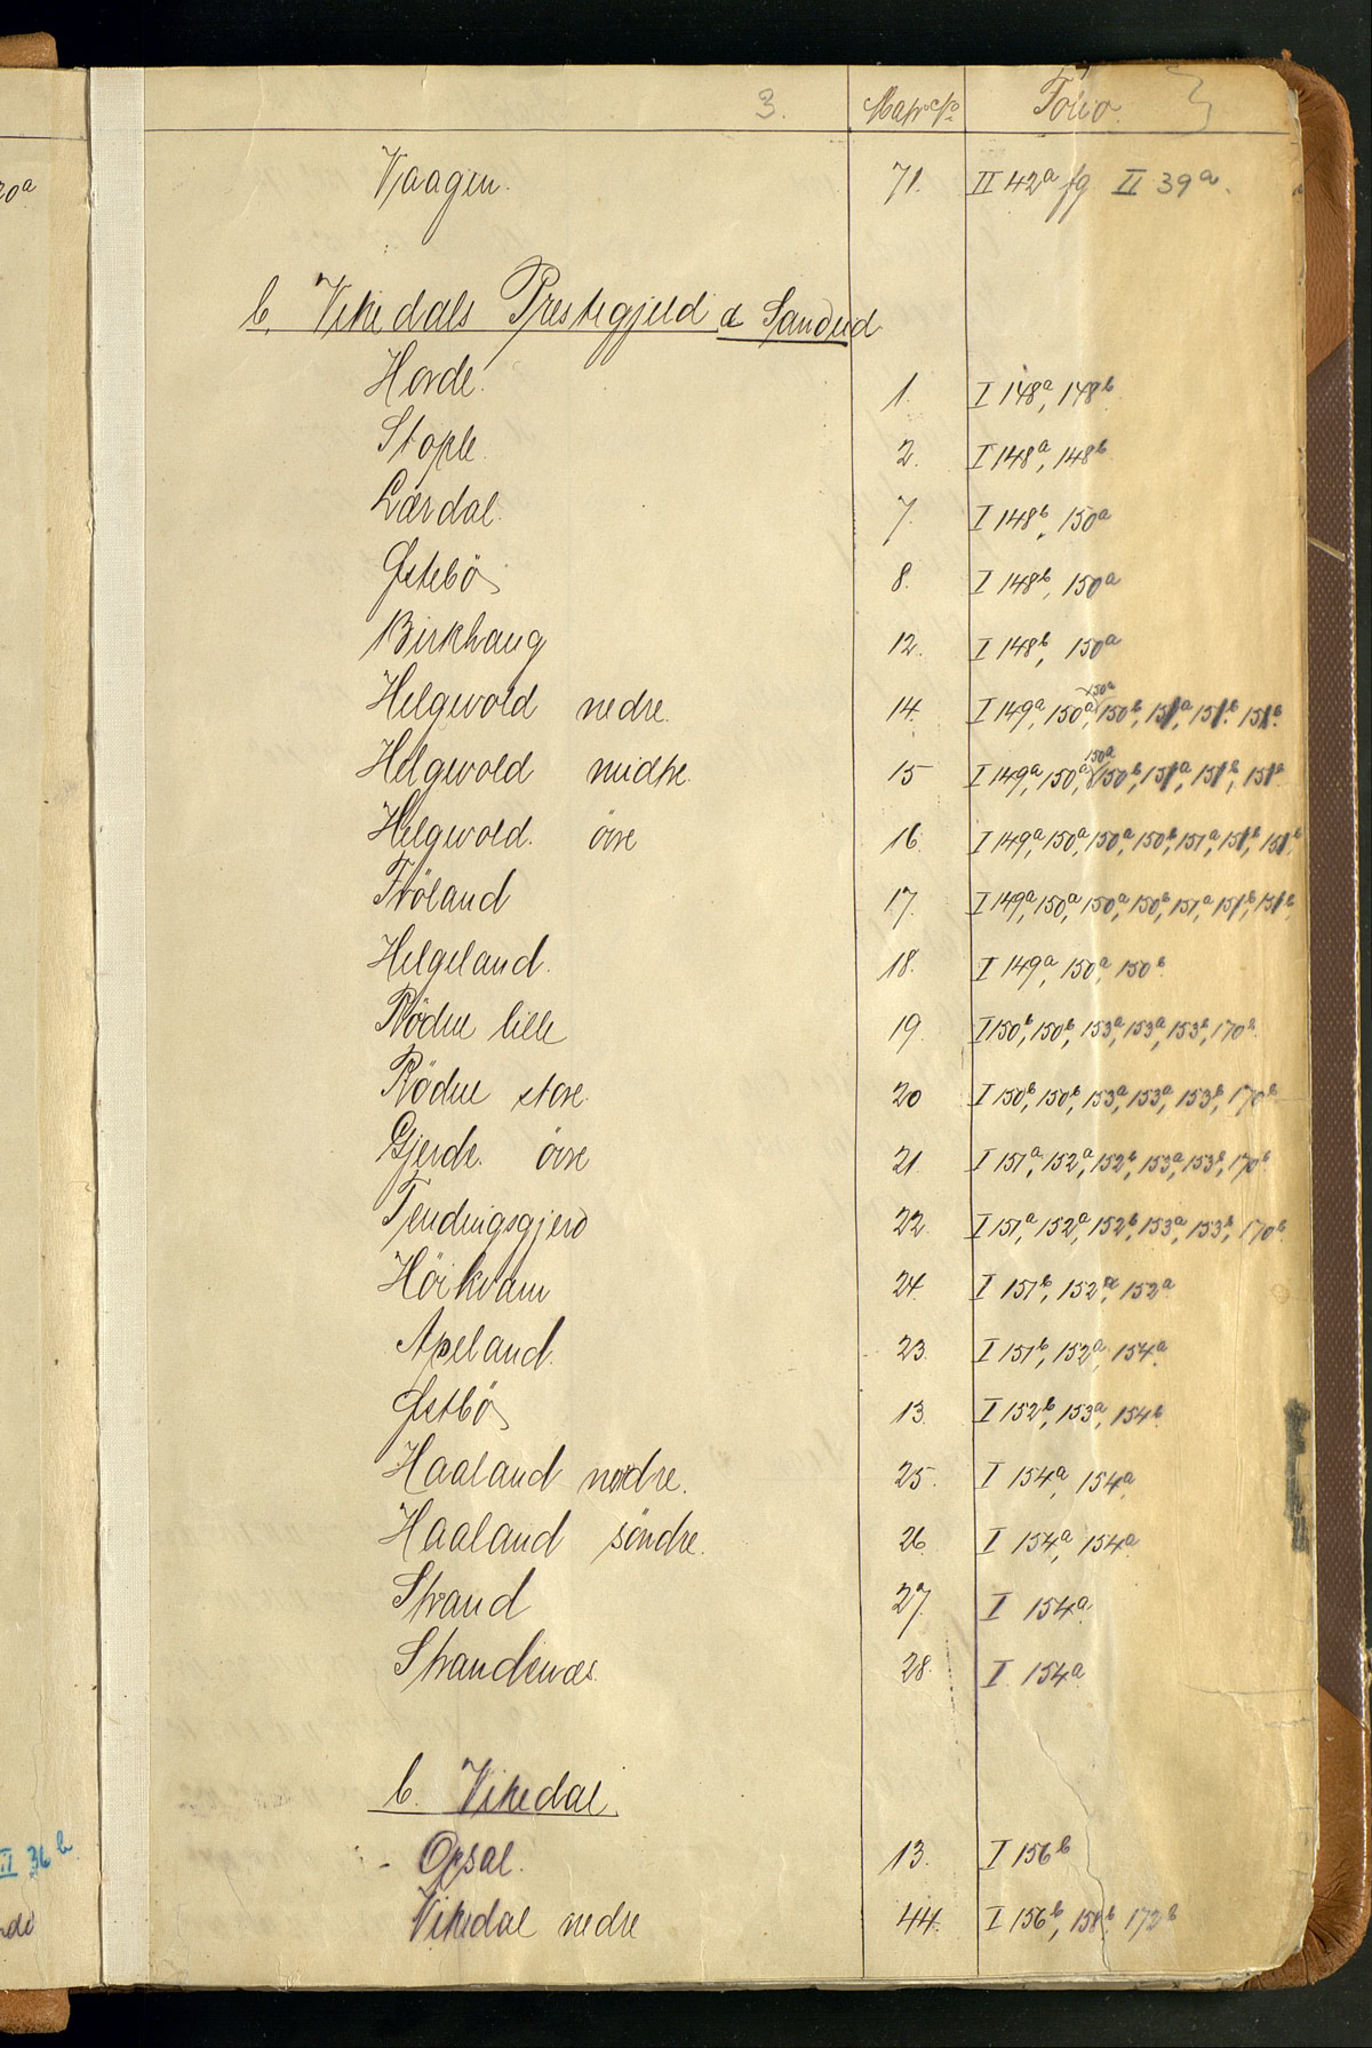 3. Matr No Folio
Vaagen. 71. II 42a fg II 39a.
b. Vikedals Prestegjeld a Sandeid
Hovde. 1. I 148a, 148b
Stople. 2. I 148a, 148b
Lærdal. 7. I 148b, 150a
Østebö 8. I 148b, 150a
Birkhaug 12. I 148b, 150a
150a
Helgevold nedre. 14. I 149a, 150a, 150b, 151a, 151b, 151b.
150a
Helgevold midtre. 15 I 149a, 150a, 150b, 151a, 151b, 151a
Helgevold. övre 16. I 149a, 150a, 150a, 150b, 151a, 151b, 151b
Fröland 17. I 149a, 150a, 150a, 150b, 151a, 151b, 151b.
Helgeland. 18. I 149a, 150a, 150b.
Rödne lille 19. I 150b, 150b, 153a, 153a, 153b, 170b.
Rödne store. 20 I 150b, 150b, 153a, 153a, 153b, 170b.
Gjerde. övre 21. I 151a, 152a, 152b, 153a, 153b, 170b.
Tendingsgjerd 22. I 151a, 152a, 152b, 153a, 153b, 170b.
Höikvam 24. I 151b, 152a, 152a.
Apeland. 23. I 151b, 152a, 154a.
Østbö 13. I 152b, 153a, 154b.
Haaland nordre. 25. I 154a, 154a.
Haaland söndre. 26. I 154a, 154a.
Strand 27. I 154a.
Strandenæs. 28. I 154a.
b. Vikedal.
- Opsal. 13. I 156b
Vikedal nedre 44. I 156b, 158b. 172b
20a
II 36b